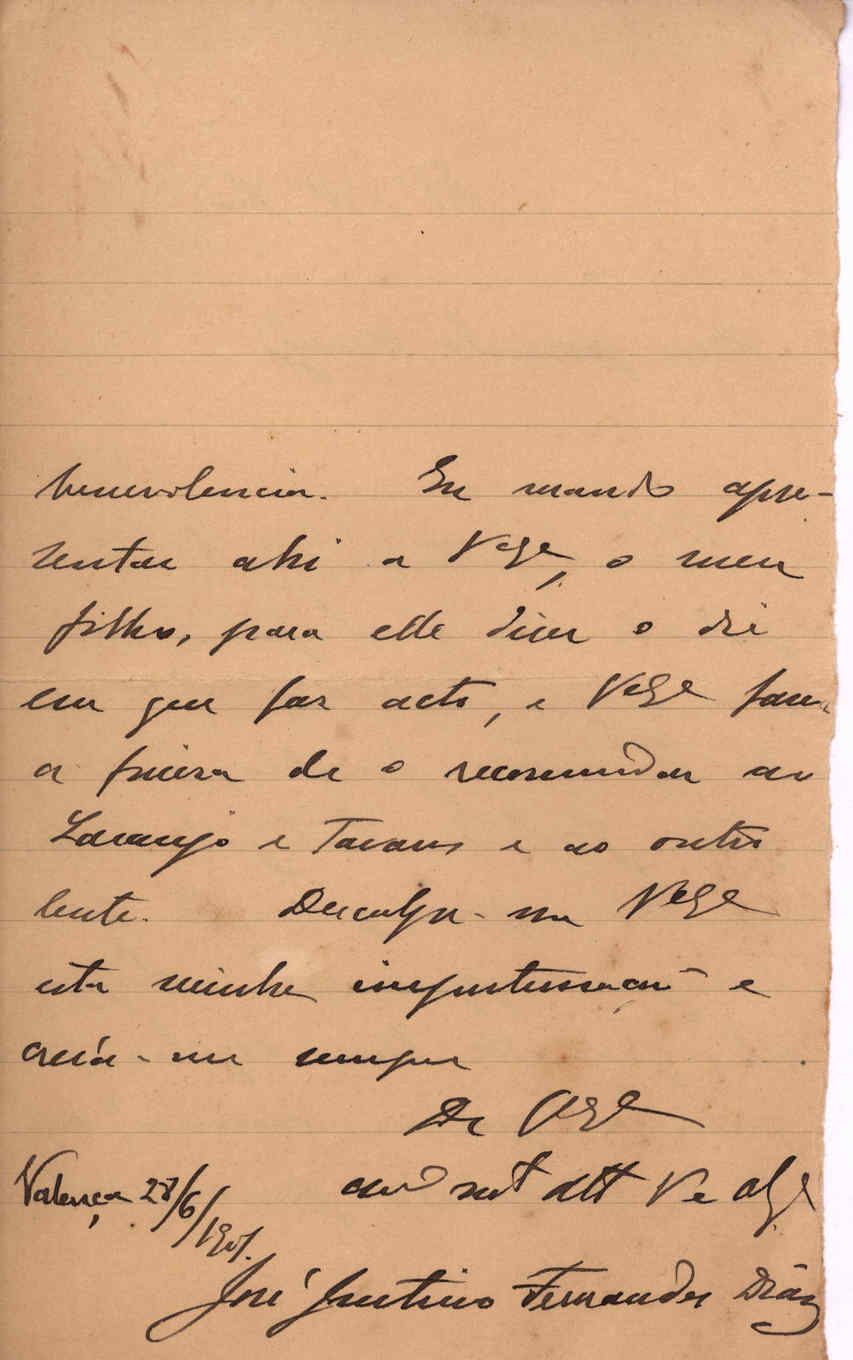 benevolencia. Eu mando apre-
sentar ahi a VExª, o meu
filho, para elle dizer o dia
em que faz acto, e VExª fará
a fineza de o recomendar ao
Laranjo e Tavares e ao outro
lente. Desculpe-me VExª
esta minha importunação e
creia-me sempre
De VExª
Valença 28/6/1901.
José Justino Fernandes Dias